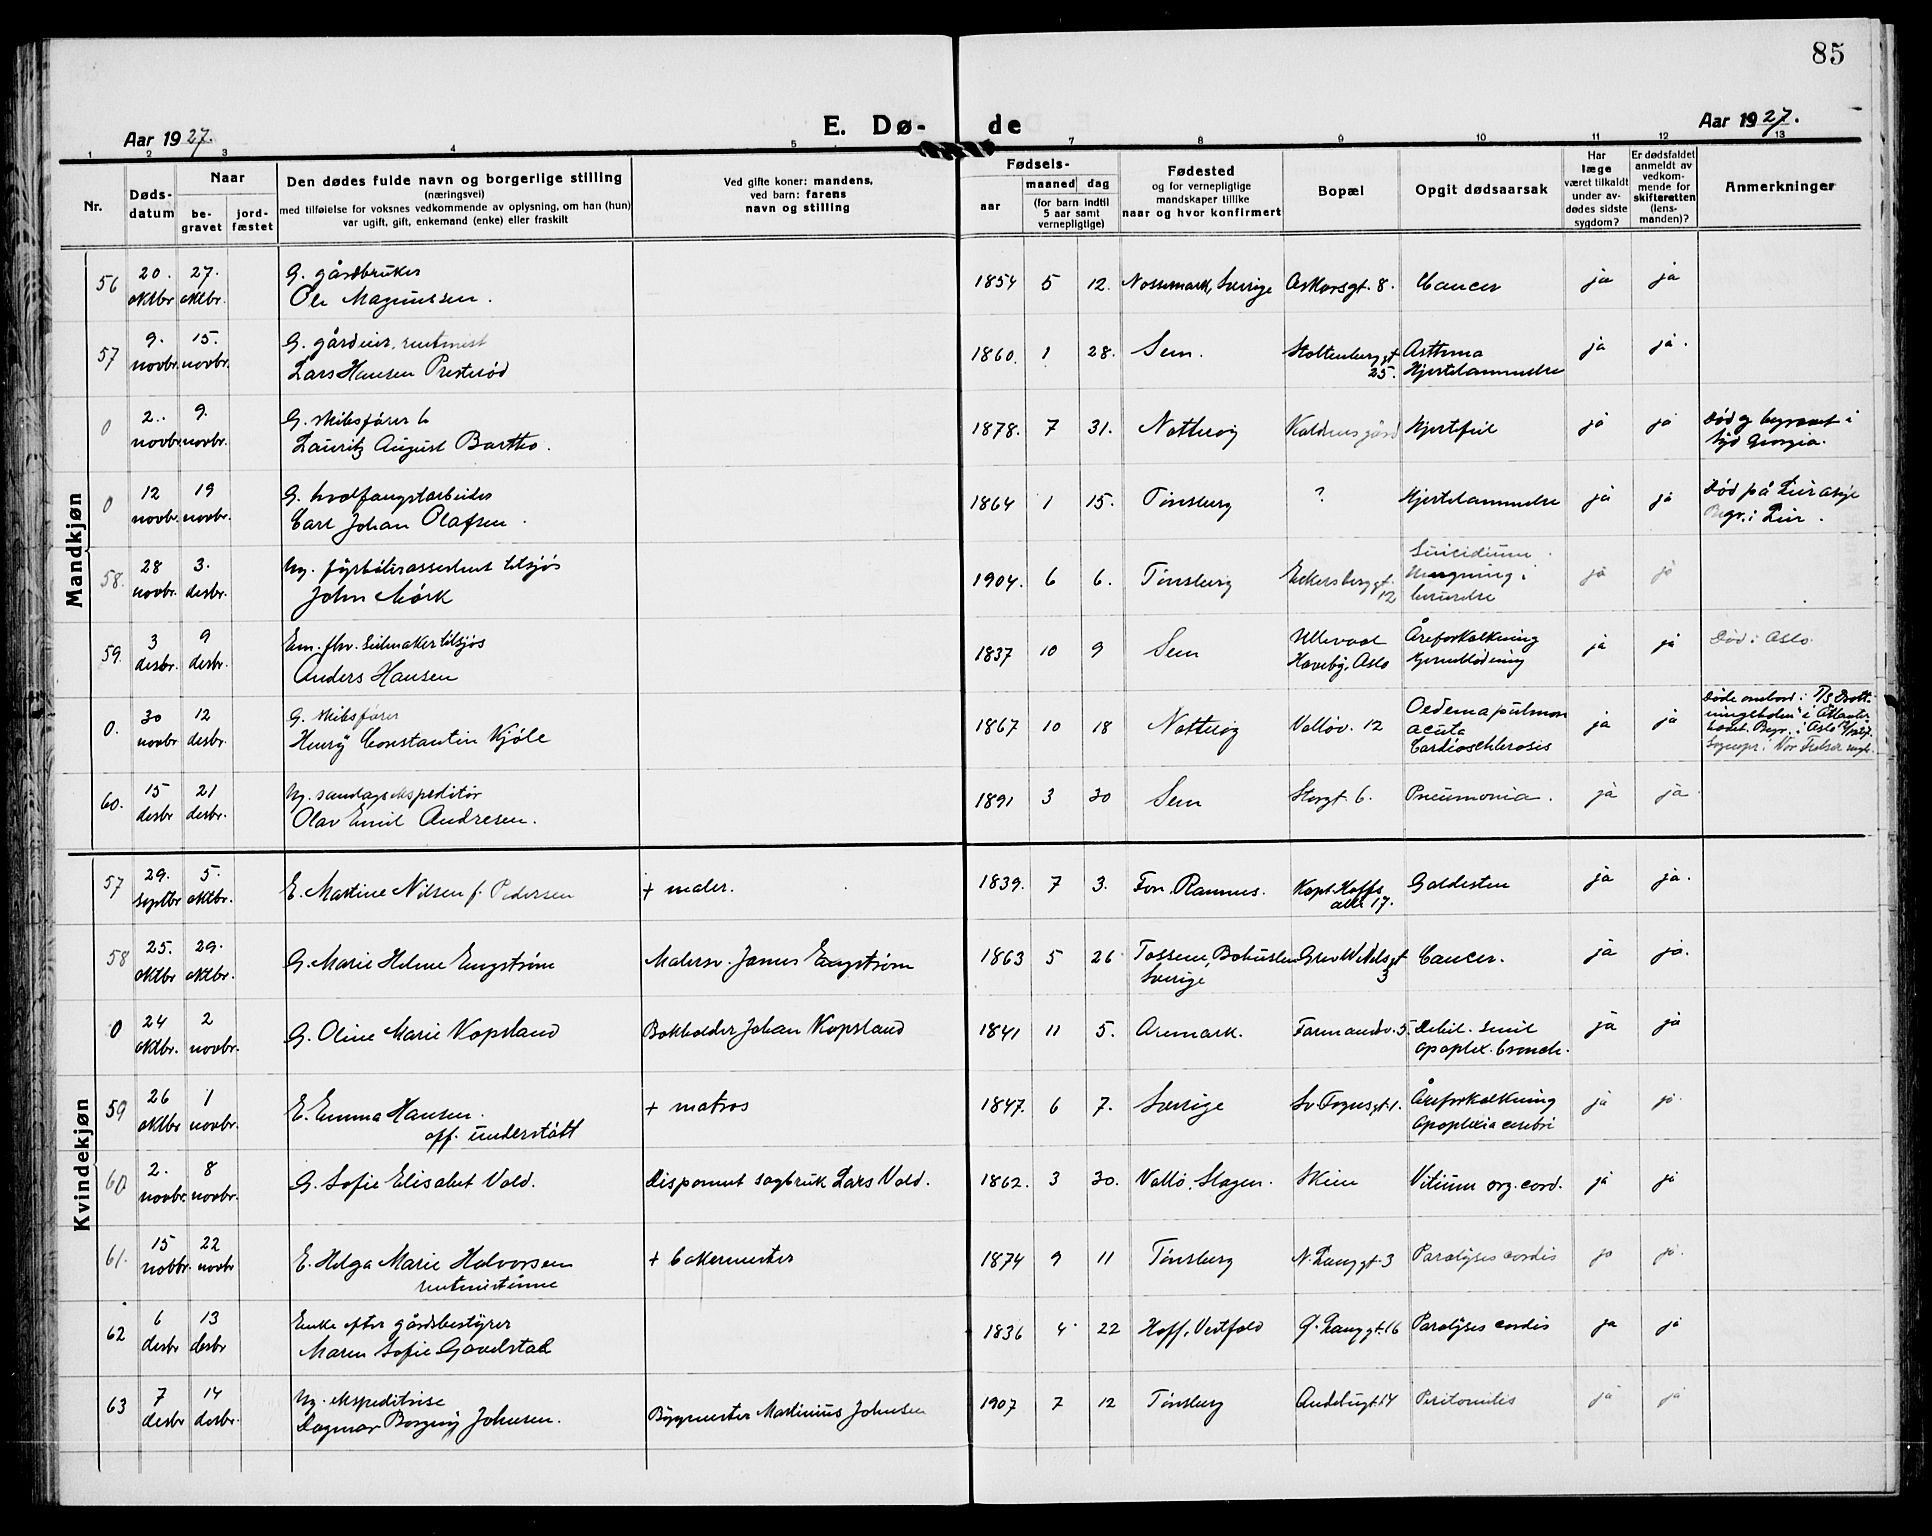 85
E. Dø- de
Aar 1927.
Aar 1927.
1 2 3 4 5 7 8 9 10 11 12 13
Nr.
Døds-
datum
Naar
be-
gravet
jord-
fæstet
Den dødes fulde navn og borgerlige stilling
(næringsvei)
med tilføielse for voksnes vedkommende av oplysning, om han (hun)
var ugift, gift, enkemand (enke) eller fraskilt
Ved gifte koner: mandens,
ved barn: farens
navn og stilling
Fødsels-
aar
maaned dag
(for barn indtil
5 aar samt
vernepligtige)
Fødested
og for vernepligtige
mandskaper tillike
naar og hvor konfirmert
Bopæl
Opgit dødsaarsak
Har
læge
været tilkaldt
under av-
dødes sidste
sygdom?
Er dødsfaldet
anmeldt av
vedkom-
mende for
skifteretten
(lens-
manden)?
Anmerkninger
Mandkjøn
56 20. oktbr 27. oktbr. G. gårdbruker
Ole Magnussen. 1854 5 12. Nossemark, Sverige Askorsgt. 8. Cancer ja ja
57 9. novbr. 15. novbr. G. gårdeier, rentenist
Lars Hansen Presterød 1860. 1 28. Sem. Stoltenberggt 25. Asthma
Hjertelammelse ja ja.
0 2. novbr 9. novbr. G. skibsfører
Lauritz August Bartho. 1878. 7 31. Nøtterøy Kaldnes gård Hjertfeil ja ja Død og begravet i
Syd Georgia.
0 12 novbr. 19 novbr. G. hvalfangstarbeider
Carl Johan Olafsen. 1864 1 15. Tønsberg ? Hjertelammelse ja ja Død på Lier asyl
Begr. i Lier.
58. 28 novbr. 3. desbr. Ug. fyrbøterassistent tilsjøs
John Mørk 1904. 6 6. Tønsberg Eckersberggt. 12 Suicidium.
i
beruselse ja ja
59. 3 desbr. 9 desbr. Em. fhv. Seilmaker tilsjøs
Anders Hansen 1837 10 9 Sem Ullevaal
Haveby, Oslo Åreforkalkning
Hjerneblødning ja ja Død i Oslo.
0. 30 novbr 12 desbr. G. skibsfører
Henry Constantin Kjøle 1867 10 18 Nøtterøy Valløv. 12 Oedema pulmon
acuta
Cardiosclerosis ja ja Døde ombord i D/S Drott-
ningholm i Atlanter-
havet. Begr. i Oslo
Vor Frelser
60. 15 desbr. 21 desbr. Ug. ekspeditør
Olav Emil Andresen. 1891 3 30 Sem Storgt. 6. Pneumonia. ja ja.
Kvindekjøn
57 29. septbr 5. oktbr. E. Martine Nilsen f. Pedersen + maler. 1839. 7 3. Fon, Ramnes. Kapt. Hoffs
alle 17. Galdesten ja ja.
58 25. oktbr 29. oktbr. G. Marie Helene Engstrøm Malersv. Engstrøm 1863 5 26 Tossene, Bohuslen
Sverige Grev Wedelsgt
3 Cancer. ja ja.
0 24 oktbr. 2 novbr. G. Oline Marie Kopsland Bokholder Johan Kopsland 1841 11 5. Aremark. Farmandsv. 5. Debil. senil
apoplex. bronch. ja ja
59 26 oktbr 1 novbr. E. Emma Hansen.
off. understøtt + matros 1847. 6 7. Sverige Sv. Foynsgt. 1. Åreforkalkning
Apoplexia cerebri ja ja.
60 2. novbr. 8 novbr. G. Sofie Elisabet Vold. Disponent sagbruk Lars Vold. 1862. 3 30. Vallø, Slagen. Skien Vitium org. cord. ja ja
61. 15 novbr. 22 novbr E. Helga Marie Halvorsen
rentenistinne + bakermester 1874 9 11 Tønsberg N. Langgt. 3 Paralyses cordis ja ja.
62 6 desbr 13 desbr Enke efter gårdsbestyrer
Maren Sofie Gavelstad 1836 4 22 Hoff, Vestfold Ø. Langgt. 16 Paralyses cordis ja ja
63 7 desbr 14 desbr. Ug. ekspeditrise
Dagmar Borgny Johnsen. Byggmester Martinius Johnsen 1907 7 12 Tønsberg Andebugt. 14 Peritonitis ja ja